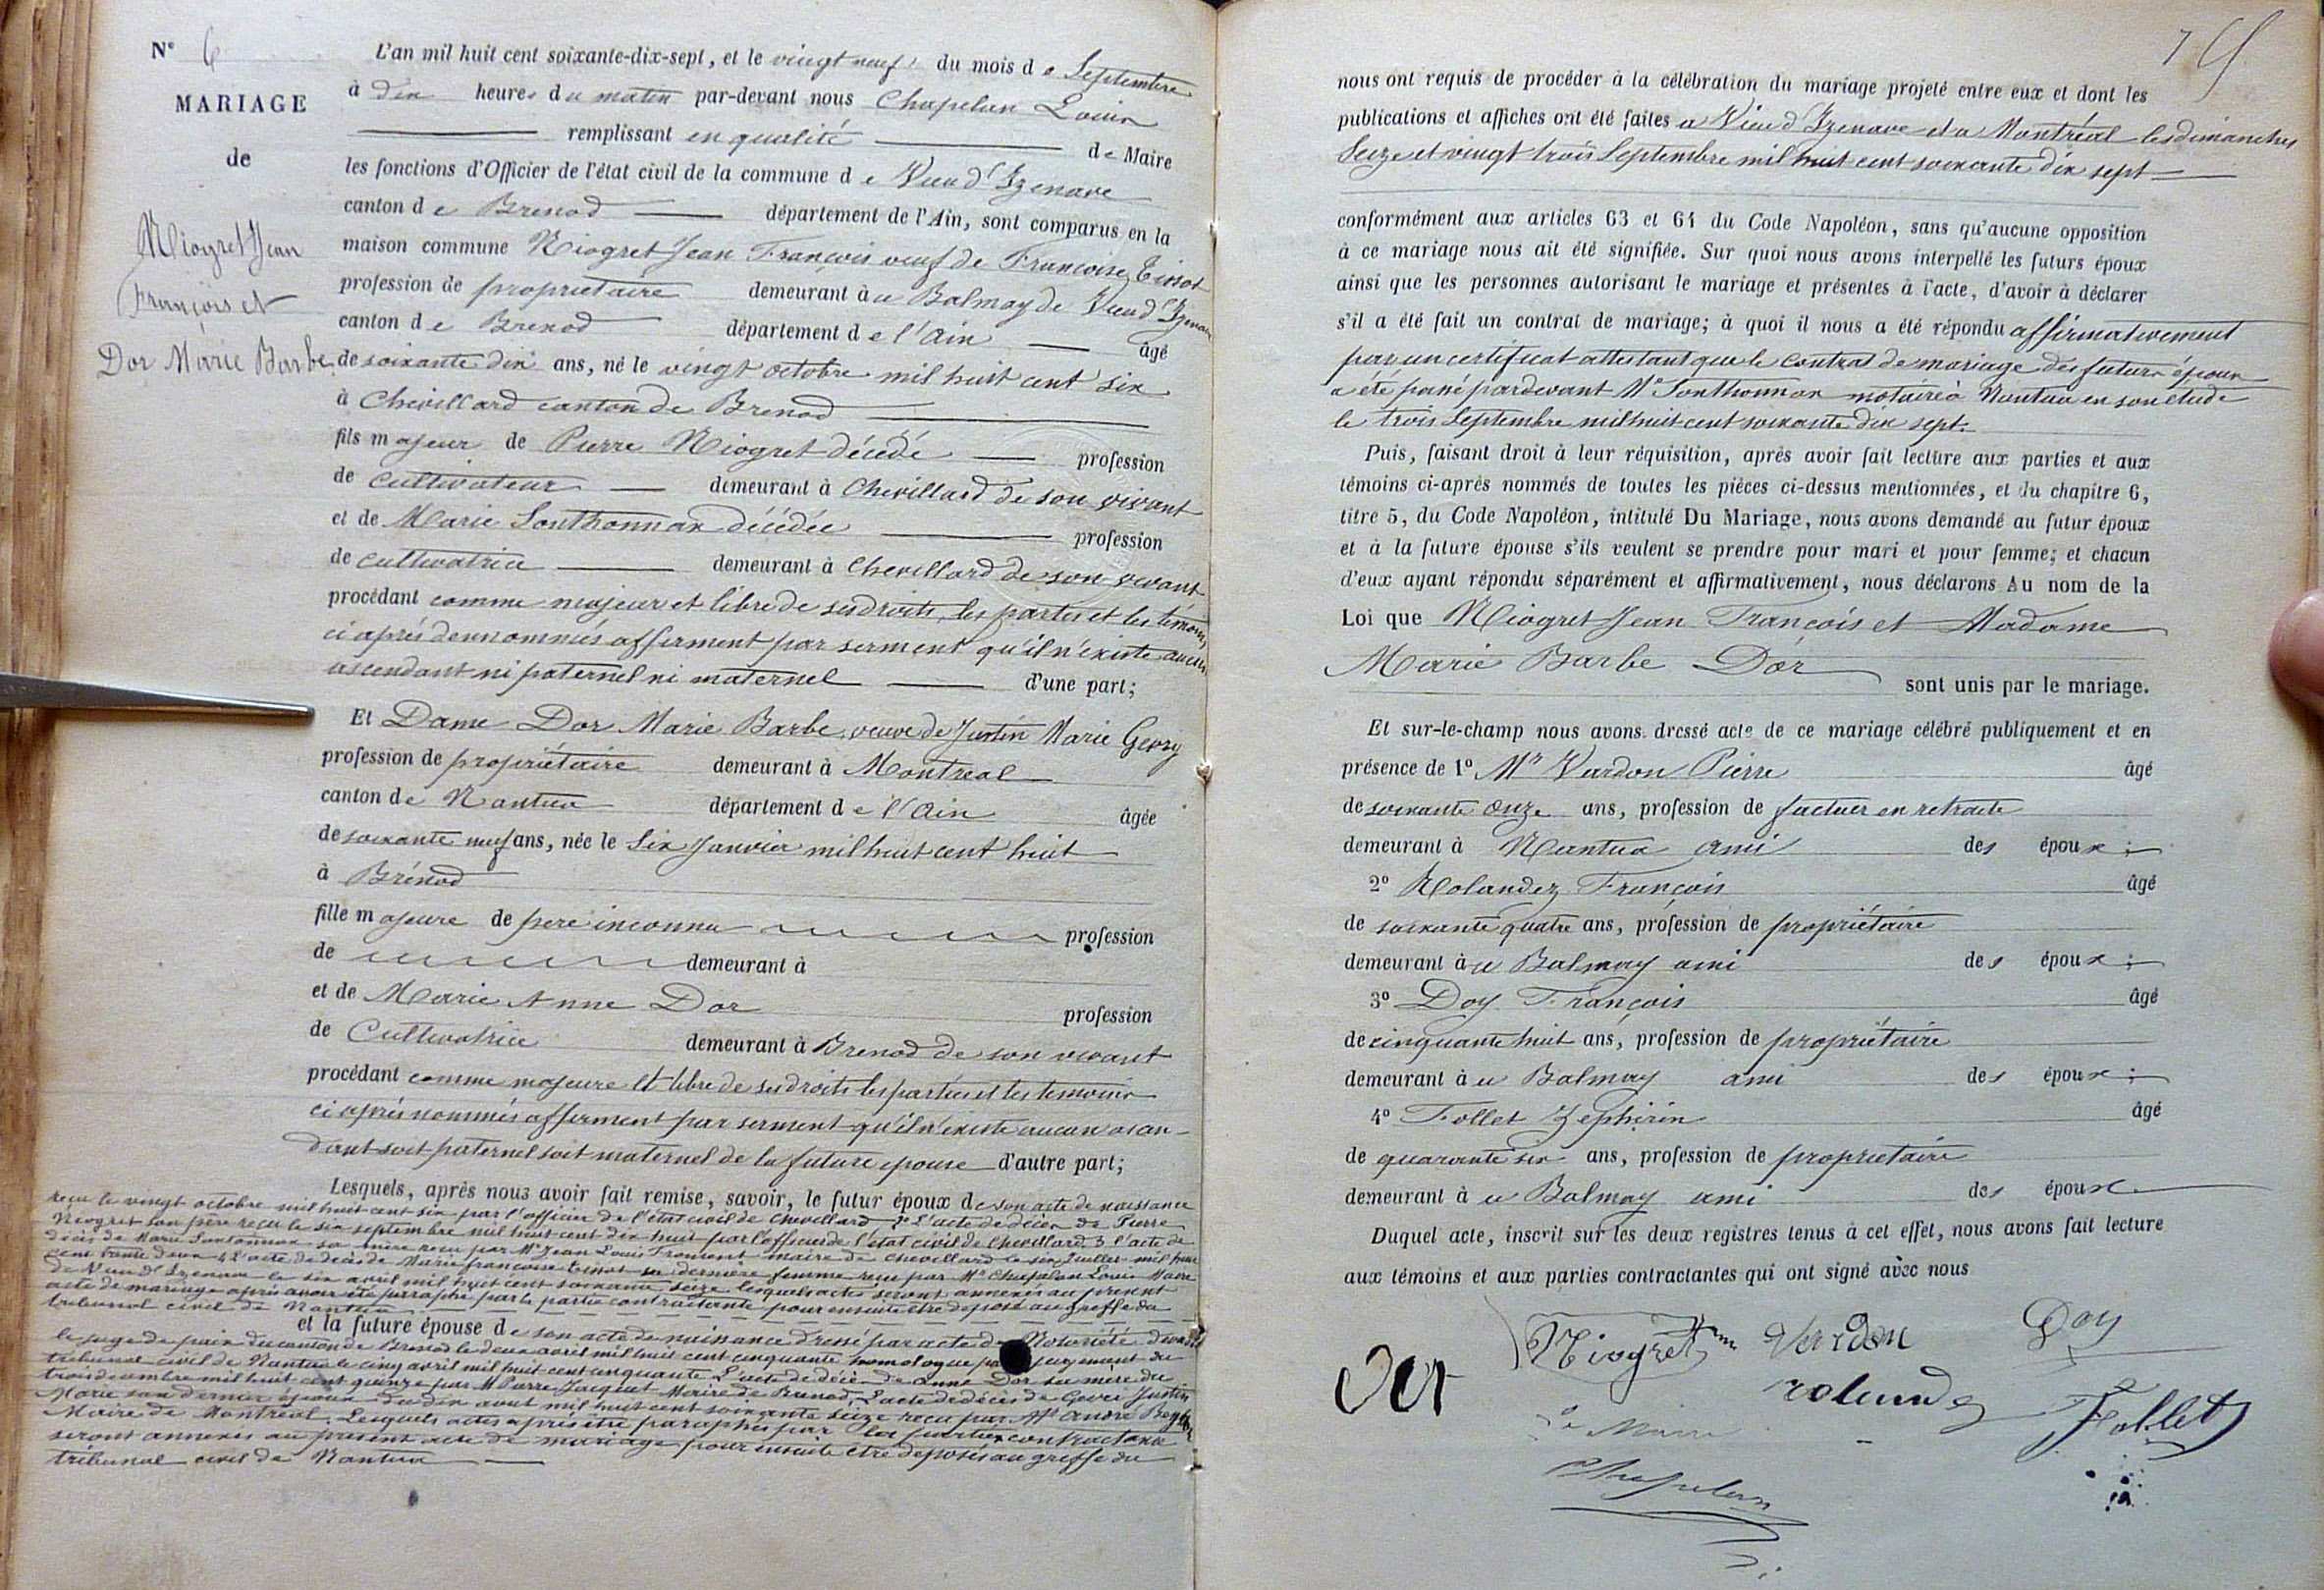 N° 6
MARIAGE
de
Niogret Jean
François et
Dor Marie Barbe
L'an mil huit cent soixante-dix-sept, et le vingt neuf du mois de Septembre
à dix heures du matin par-devant nous Chapelan Louis
remplissant en qualité de Maire
les fonctions d'Officier de l'état civil de la commune de Vieu d'Izenave
canton de Brenod département de l'Ain, sont comparus en la
maison commune Niogret Jean François veuf de Françoise Tissot
profession de propriétaire demeurant à u Balmay de Vieu d'Izenave
canton de Brenod département de l'Ain âgé
de soixante dix ans, né le vingt octobre mil huit cent six
à Chevillard canton de Brenod
fils majeur de Pierre Niogret décédé profession
de cultivateur demeurant à Chevillard de son vivant
et de Marie Sonthonnax décédée profession
de cultivatrice demeurant à Chevillard de son vivant
procédant comme majeur et libre de ses droits, les parties et les témoins
ci après dennommés afferment par serment qu'il n'existe aucun
ascendant ni paternel ni maternel d'une part;
Et Dame Dor Marie Barbe, veuve de Justin Marie
profession de propriétaire demeurant à Montreal
canton de Nantua département de l'Ain âgée
de soixante neuf ans, née le Six Janvier mil huit cent huit
à Brénod
fille majeure de père inconnu profession
de demeurant à
et de Marie Anne Dor profession
de Cultivatrice demeurant à Brenod de son vivant
procédant comme majeure et libre de ses droits les parties et les temoins
ci après nommés afferment par serment qu'il n'existe aucun ascan-
dant soit paternel soit maternel de la future epouse d'autre part;
Lesquels, après nous avoir fait remise, savoir, le futur époux de son acte de naissance
reçu le vingt octobre mil huit cent six par l'officier de l'état civil de Chevillard 2° L'acte de décès de Pierre
Niogret son père reçu le six septembre mil huit cent dix huit par l'officier de l'état civil de Chevillard, 3 l'acte de
décès de Marie Sonthonnax sa mère reçu par Mr Jean Louis Froment maire de Chevillard le six Juillet mil huit
cent trente deux 4 L'acte de décès de Marie françoise Tissot sa dernière femme reçu par Mr Chapelan Louis Maire
de Vieu d'Izenave le six avril mil huit cent soixante seize lesquels actes seront annexés au présent
acte de mariage après avoir été parraphé par la partie contractante pour ensuite être déposé au greffe du
tribunal civil de Nantua
et la future épouse de son acte de naissance dressé par acte de Notoriété devant
le juge de paix du canton de Brenod le deux avril mil huit cent cinquante homologue par jugement du
tribunal civil de Nantua le cinq avril mil huit cent cinquante L'acte de décès de Anne Dor sa mère du
trois décembre mil huit cent quinze par M Pierre Jacquet Maire de Brenod, L'acte de décès de Justin
Marie son dernier époux du dix aout mil huit cent soixante seize reçu par Mr André
Maire de Montréal. Lesquels actes après être paraphés par les parties contractante
seront annexés au présent acte de mariage pour ensuite etre déposés au greffe du
tribunal civil de Nantua
nous ont requis de procéder à la célébration du mariage projeté entre eux et dont les
publications et affiches ont été faites a Vieu d'Izenave et a Montréal les dimanches
Seize et vingt trois Septembre mil huit cent soixante dix sept
conformément aux articles 63 et 64 du Code Napoléon, sans qu'aucune opposition
à ce mariage nous ait été signifiée. Sur quoi nous avons interpellé les futurs époux
ainsi que les personnes autorisant le mariage et présentes à l'acte, d'avoir à déclarer
s'il a été fait un contrat de mariage; à quoi il nous a été répondu affirmativement
par un certificat attestant que le contrat de mariage des futurs époux
a été passé pardevant Me Sonthonnax notaire à Nantua en son étude
le trois Septembre mil huit cent soixante dix sept.
Puis, faisant droit à leur réquisition, après avoir fait lecture aux parties et aux
témoins ci-après nommés de toutes les pièces ci-dessus mentionnées, et du chapitre 6,
titre 5, du Code Napoléon, intitulé Du Mariage, nous avons demandé au futur époux
et à la future épouse s'ils veulent se prendre pour mari et pour femme; et chacun
d'eux ayant répondu séparément et affirmativement, nous déclarons Au nom de la
Loi que Niogret Jean François et Madame
Marie Barbe Dor
sont unis par le mariage.
Et sur-le-champ nous avons dressé acte de ce mariage célébré publiquement et en
présence de 1° Mr Verdon Pierre âgé
de soixante onze ans, profession de facteur en retraite
demeurant à Nantua ami des époux;
2° Rolandez François âgé
de soixante quatre ans, profession de propriétaire
demeurant à u Balmay ami des époux;
3° Doy François âgé
de cinquante huit ans, profession de propriétaire
demeurant à u Balmay ami des époux;
4° Follet Zephirin âgé
de quarante six ans, profession de propriétaire
demeurant à u Balmay ami des époux
Duquel acte, inscrit sur les deux registres tenus à cet effet, nous avons fait lecture
aux témoins et aux parties contractantes qui ont signé avec nous
Niogret Verdon Doy
Dor rolandez Follet
Le Maire
Chapelan